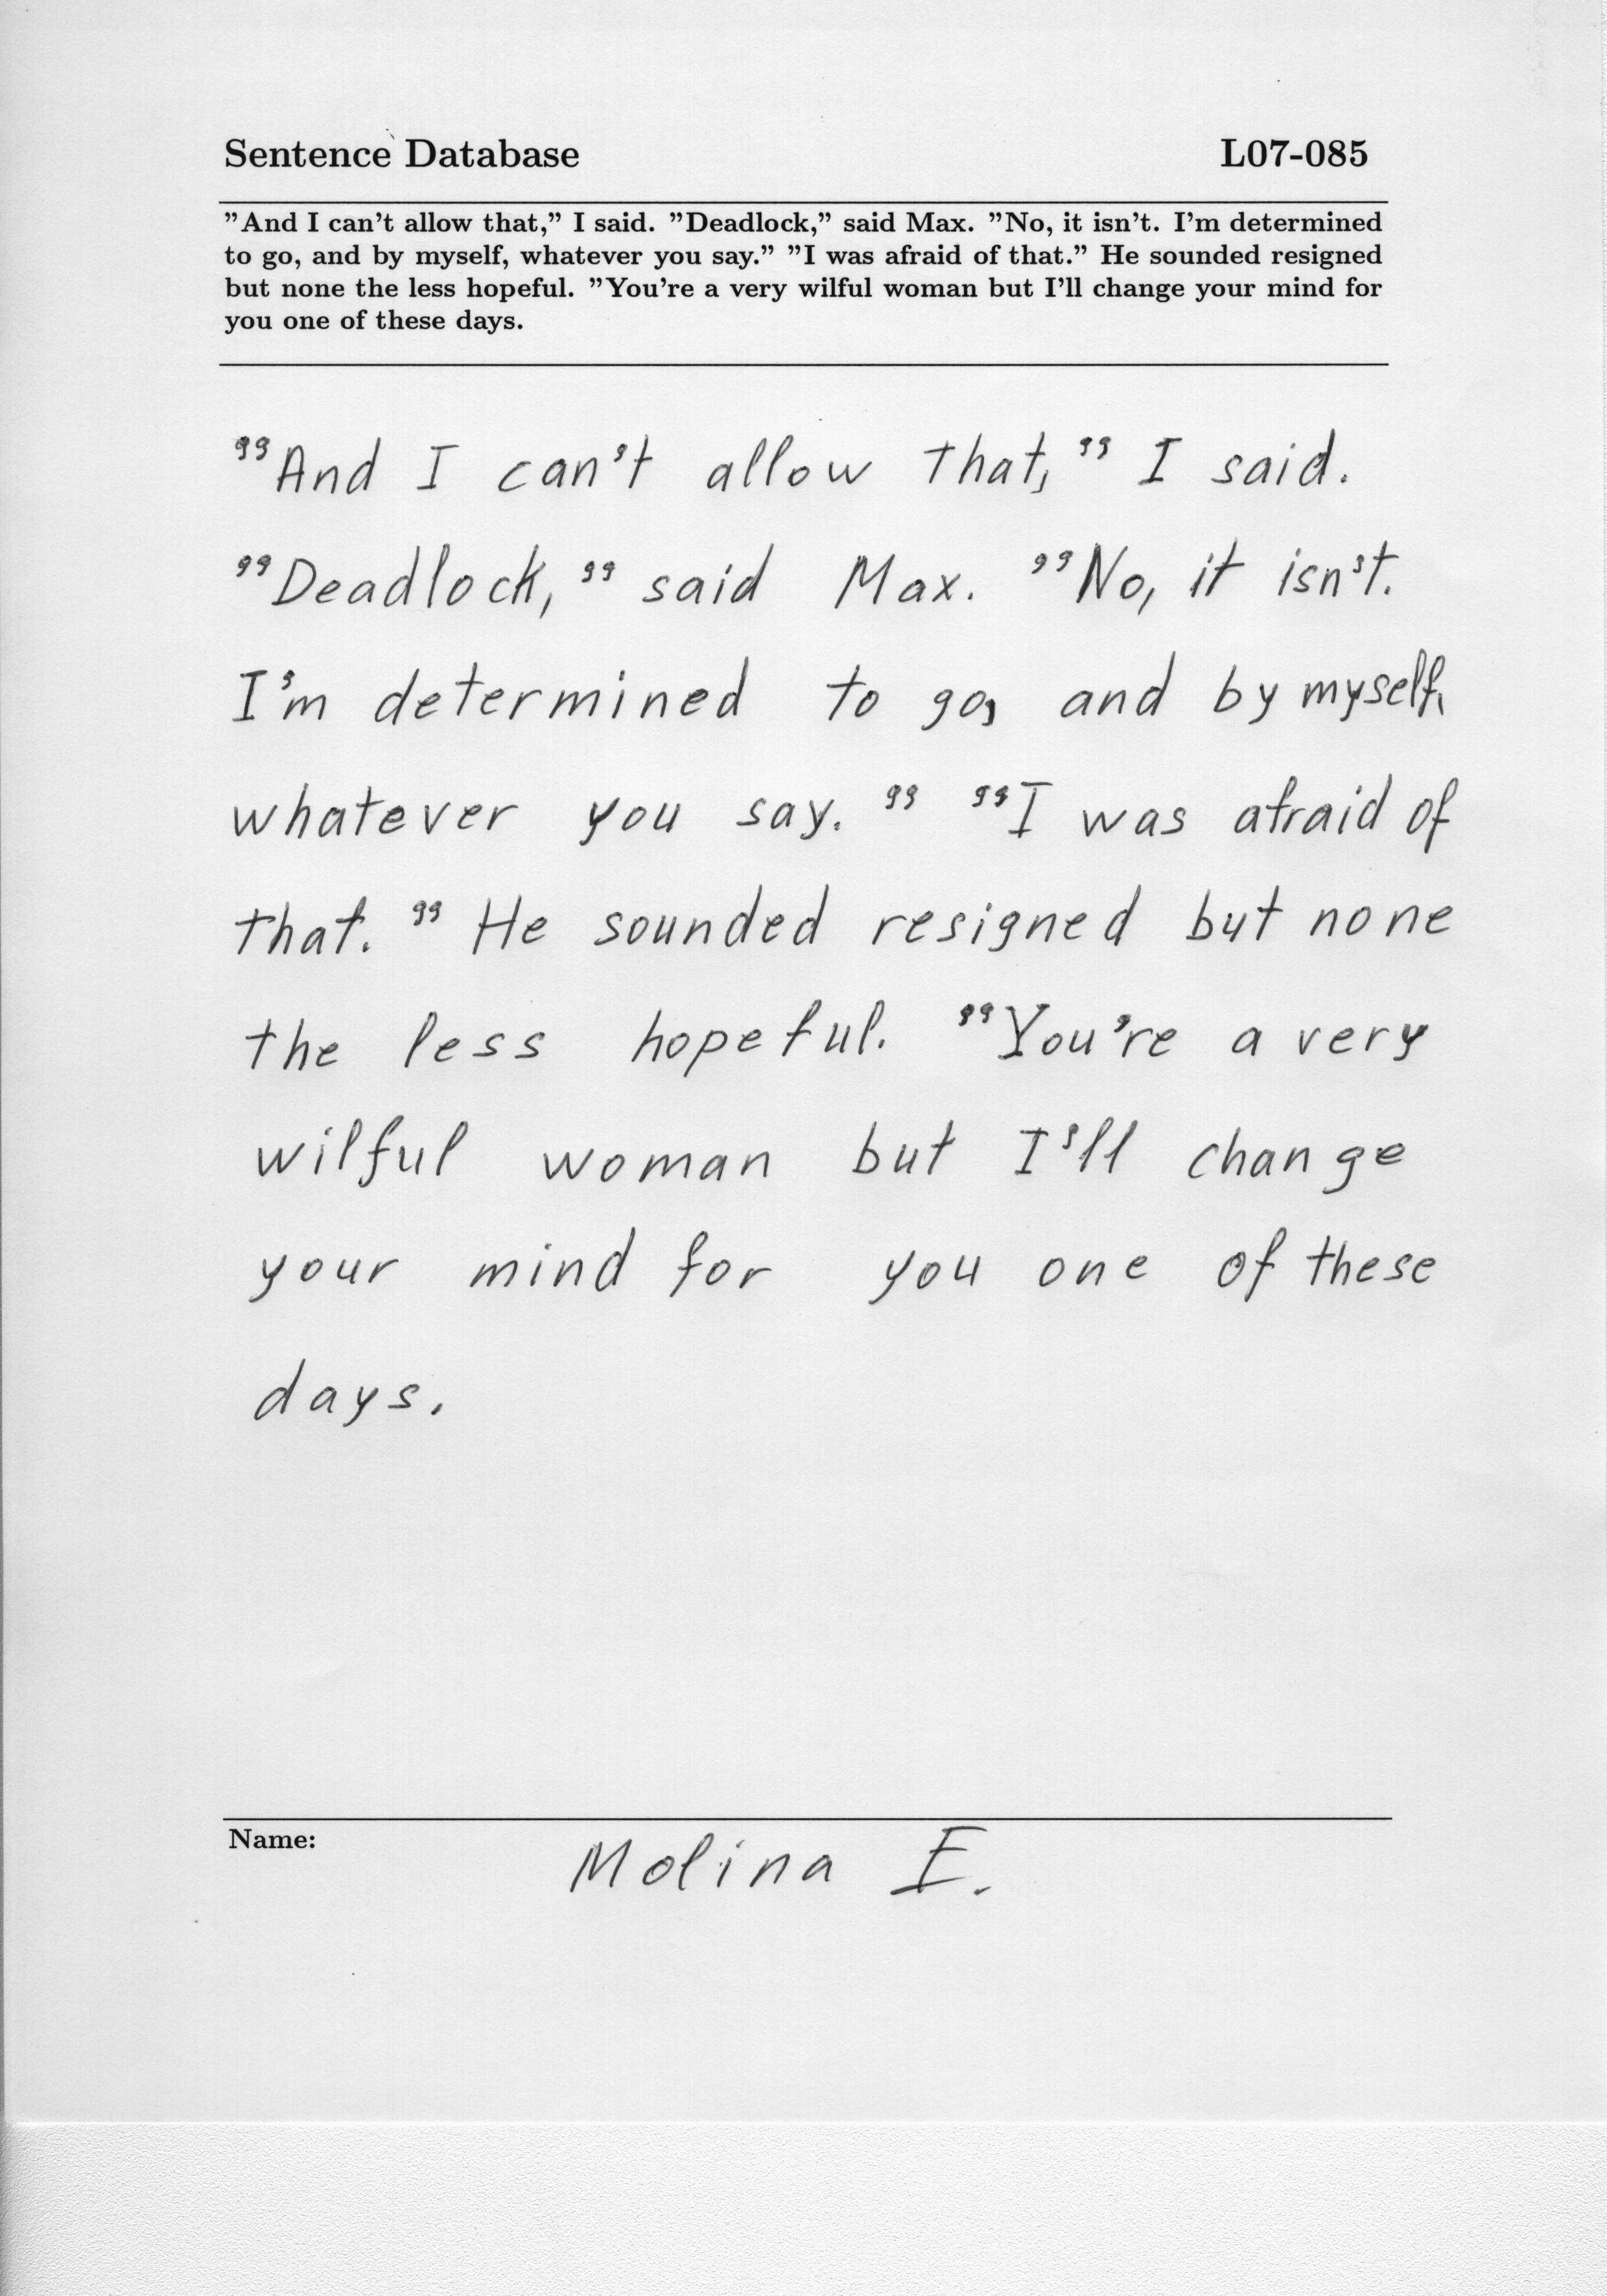 Sentence Database L07-085
”And I can’t allow that,” I said. ”Deadlock,” said Max. ”No, it isn’t. I’m determined
to go, and by myself, whatever you say.” ”I was afraid of that.” He sounded resigned
but none the less hopeful. ”You’re a very wilful woman but I’ll change your mind for
you one of these days.
”And I can’t allow that,” I said.
”Deadlock,” said Max. ”No, it isn’t.
I’m determined to go, and by myself,
whatever you say.” ”I was afraid of
that.” He sounded resigned but none
the less hopeful. ”You’re a very
wilful woman but I’ll change
your mind for you one of these
days.
Name: Molina E.